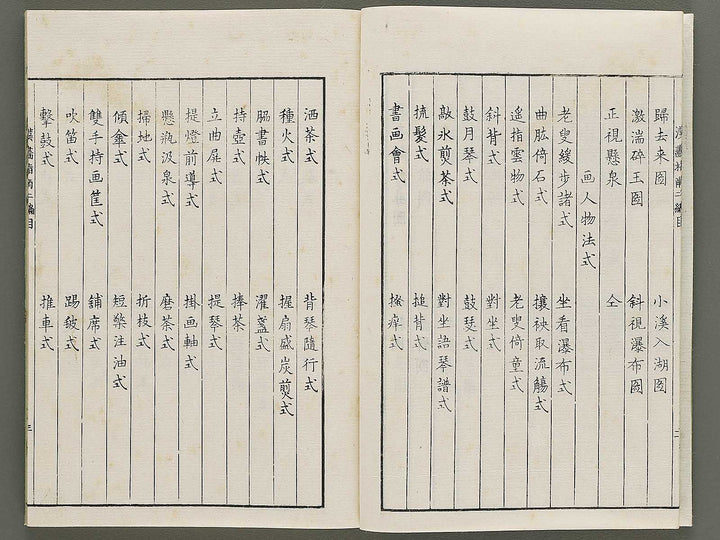 歸去来圖 小溪入湖圖
激湍碎玉圖 斜視瀑布圖
正視懸泉 仝
画人物法式
老叟緩步諸式 坐看瀑布式
曲肱倚石式 攘袂取流觴式
遥指雲物式 老叟倚童式
斜背式 對坐式
鼓月琴式 鼓琴式
敲氷煎茶式 對坐語琴譜式
梳髪式 搥背式
書画會式 搔痒式
二
洒茶式 背琴隨行式
種火式 握扇盛炭煎式
脇書帙式 濯盞式
持壺式 捧茶
立曲屍式 提琴式
提燈前導式 掛画軸式
懸瓶汲泉式 磨茶式
掃地式 折枝式
傾傘式 短檠注油式
雙手持画筐式 鋪席式
吹笛式 踢毬式
擊鼓式 推車式
三